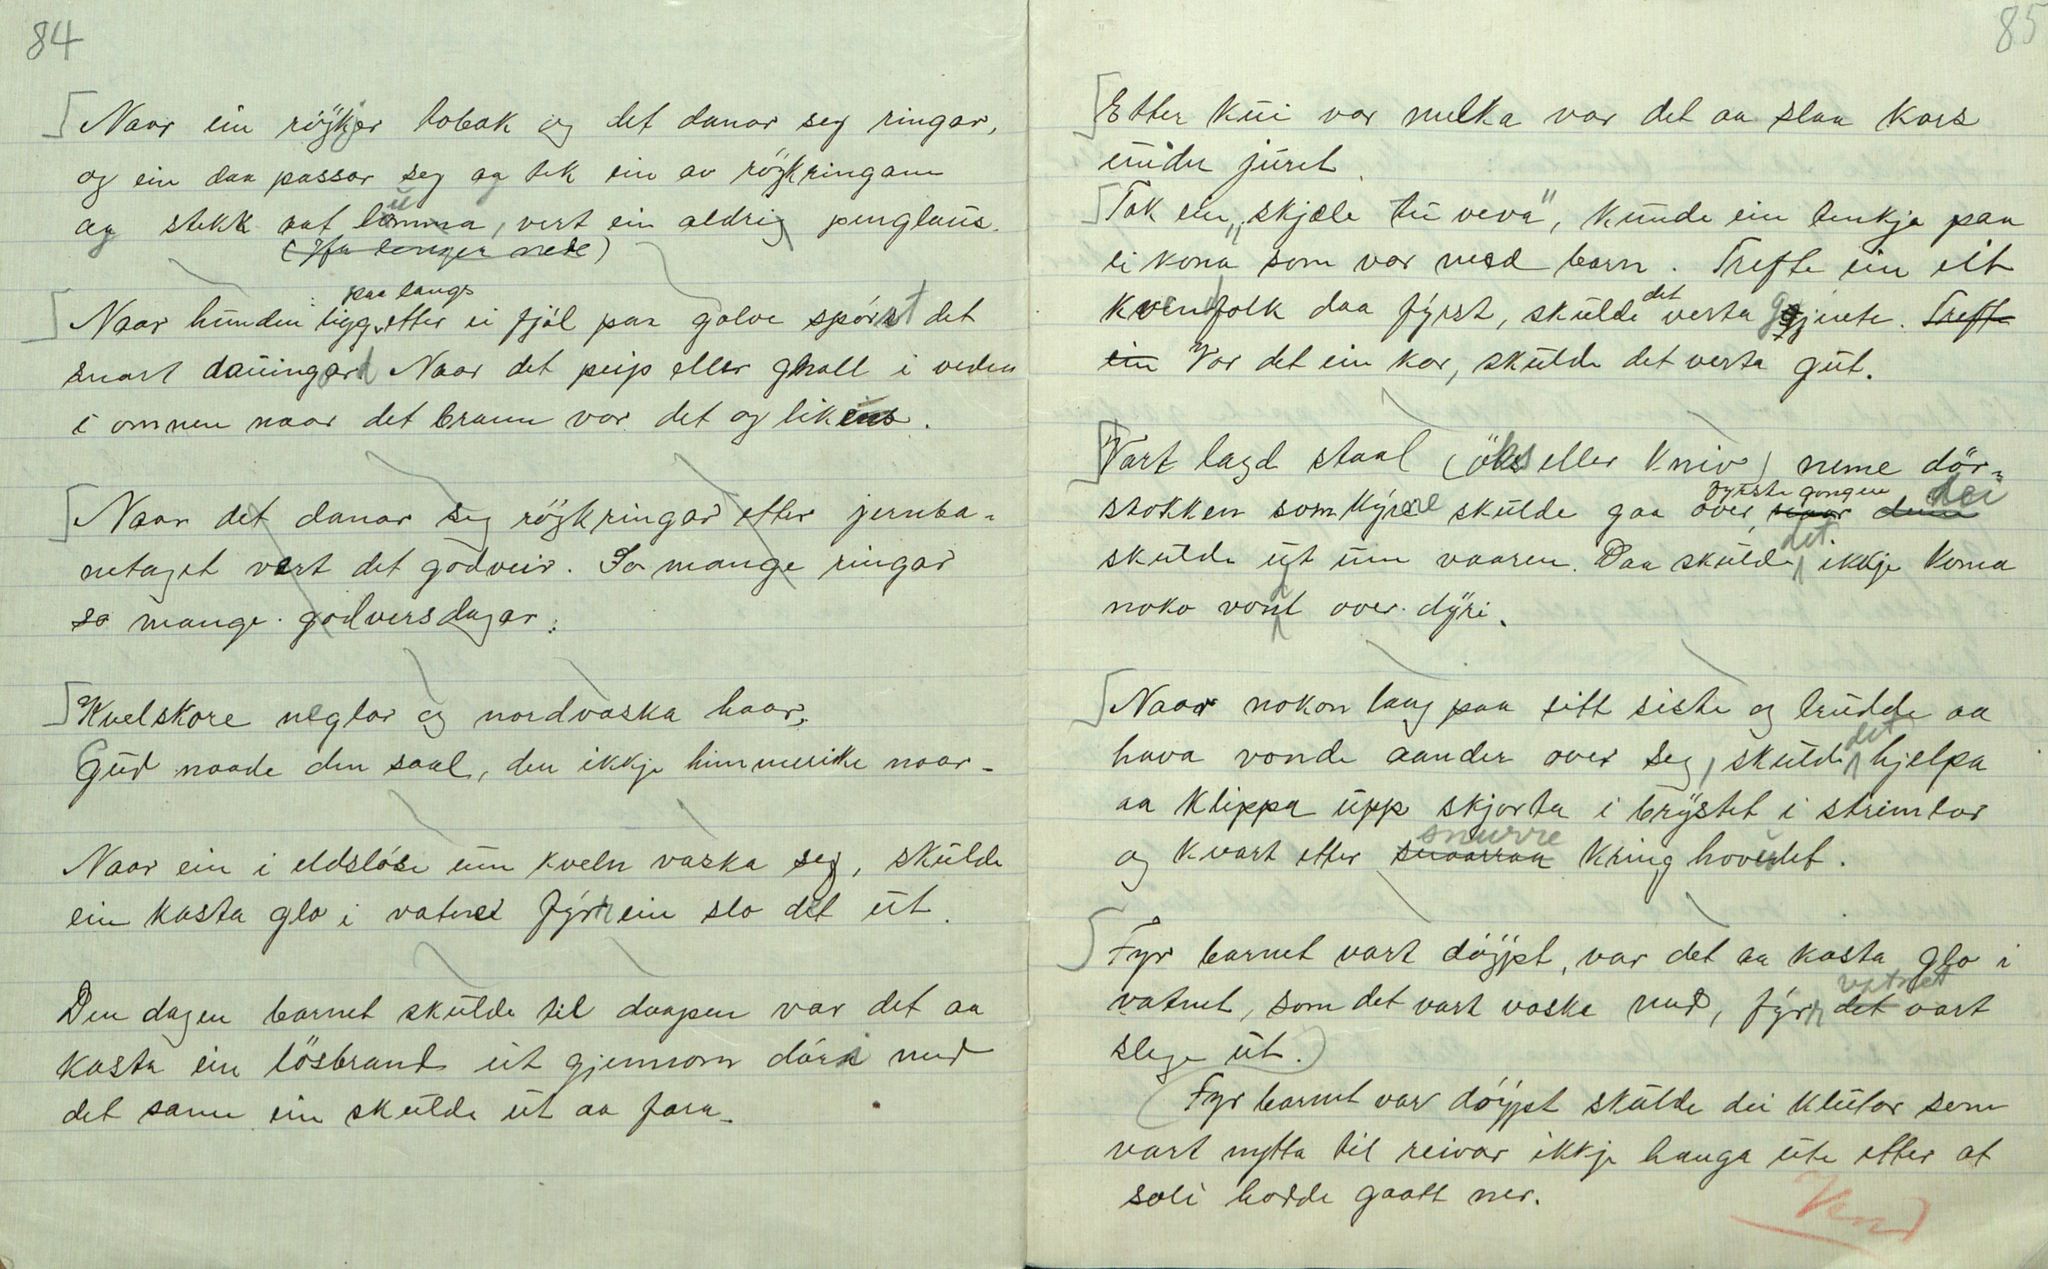 84
Naar ein röjkjer tobak og det danar seg ringar,
og ein daa passar seg og tek ein av röjkringane
og stekk aat lumma, vert ein aldrig penglaus.
Naar hunden ligg paa langs etter ei fjöl paa golve spörst det
snart dauingar. Naar det peip eller gnall i veden
i omnen naar det brann var det og likeins.
Naar det danar seg röjkringar etter jernba-
netoget vert det godveir. So mange ringar
so mange godversdagar.
Kvelskore neglar og nordvaska haar.
Gud naade den saal, den ikkje himmerike naar-
Naar ein i eldslöse um kveln vaska seg, skulde
ein kasta glo i vatnet fyrr ein slo det ut.
Den dagen barnet skulde til daapen var det aa
kasta ein lösbrand ut gjennom döri med
det same ein skulde ut aa fara.
85
Etter kui var melka var det aa slaa kors
under juret.
Tok ein „skjele tu veva", kunde ein tenkja paa
ei kona som var med barn. Trefte ein eit
kvendfolk daa fyrst, skulde det verta gjente. Trefte
ein Var det ein kar, skulde det verta gut.
Vart lagd staal (öks eller kniv) neme dör-
stokken som kyrne skulde gaa over fyrste gongen dei
skulde ut um vaaren. Daa skulde det ikkje koma
noko vondt over dyri.
Naar nokon laag paa sitt siste og trudde aa
hava vonde aander over seg, skulde det hjelpa
aa klippa upp skjorta i brystet i strimlar
og kvart etter snurre kring hovudet.
Fyr barnet vart döypt, var det aa kasta glo i
vatnet, som det vart vaska med, fyrr vatnet vart
slege ut.)
(Fyr barnet var döypt skulde dei klutar som
vart nytta til reivar ikkje hanga ute etter at
soli hadde gaatt ner.
Vend